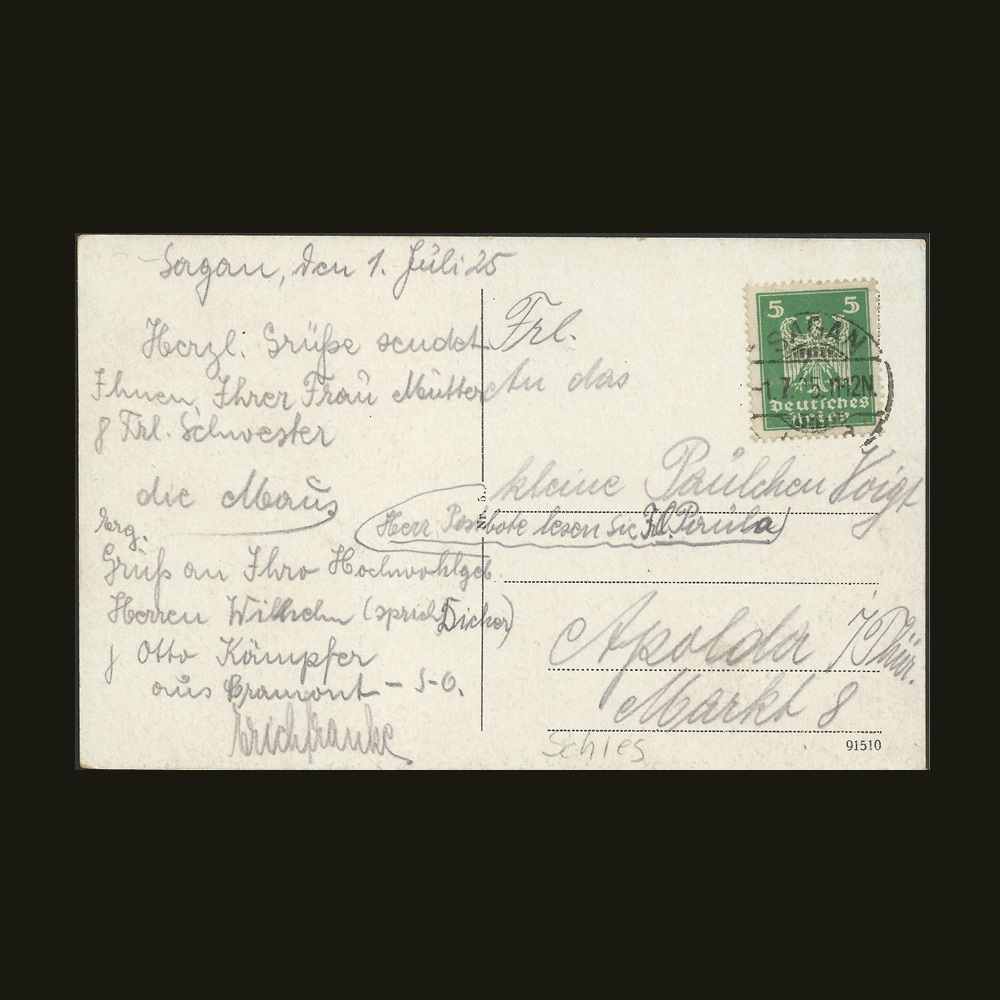 Sagan, den 1. Juli 25
Herzl. Grüße sendet
Ihnen, Ihrer Frau Mutter
& Frl. Schwester
die Maus
Erg.
Gruß an Ihro Hochwohlgeb.
Herren Wilhelm (sprich Dicker)
Otto Kämpfer
aus Cramont - S-O.
Erich Franke
Frl.
An das
kleine Paulchen Voigt
(Herr Postbote lesen Sie Frl. Paula)
Apolda i/Thür.
Markt 8
Schles
Nr. 5.
91510
5 5
Deutsches
Reich
SAGAN
1.7.25.11-12N